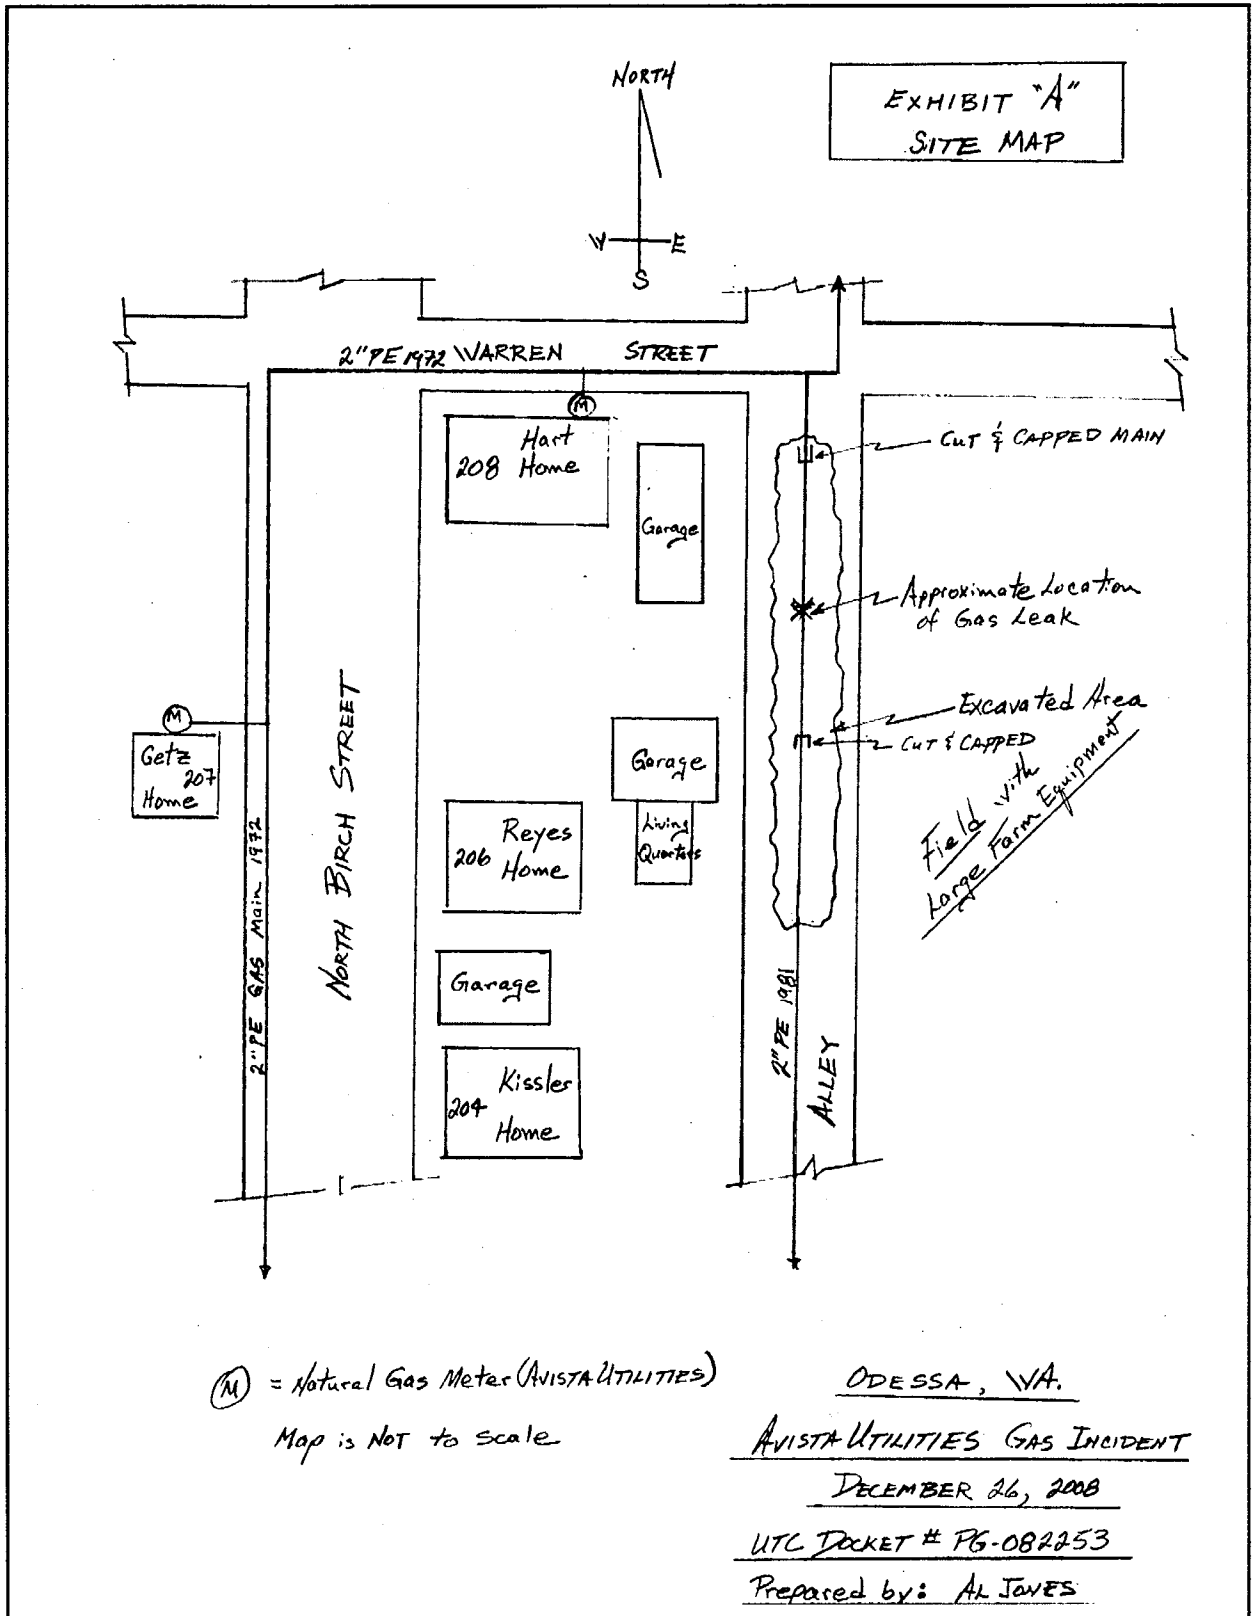 NORTH
EXHIBIT "A"
SITE MAP
W E
S
2" PE 1972 WARREN STREET
M
Hart
208 Home
Garage
CUT & CAPPED MAIN
Approximate Location
of Gas Leak
Excavated Area
CUT & CAPPED
Field with
Large Farm Equipment
M
Getz
207
Home
2" PE GAS Main 1972
NORTH BIRCH STREET
Garage
Living
Quarters
Reyes
206 Home
Garage
Kissler
204
Home
2" PE 1981
ALLEY
M = Natural Gas Meter (AVISTA UTILITIES)
Map is NOT to scale
ODESSA, WA.
AVISTA UTILITIES GAS INCIDENT
DECEMBER 26, 2008
UTC DOCKET # PG-082253
Prepared by: AL JONES